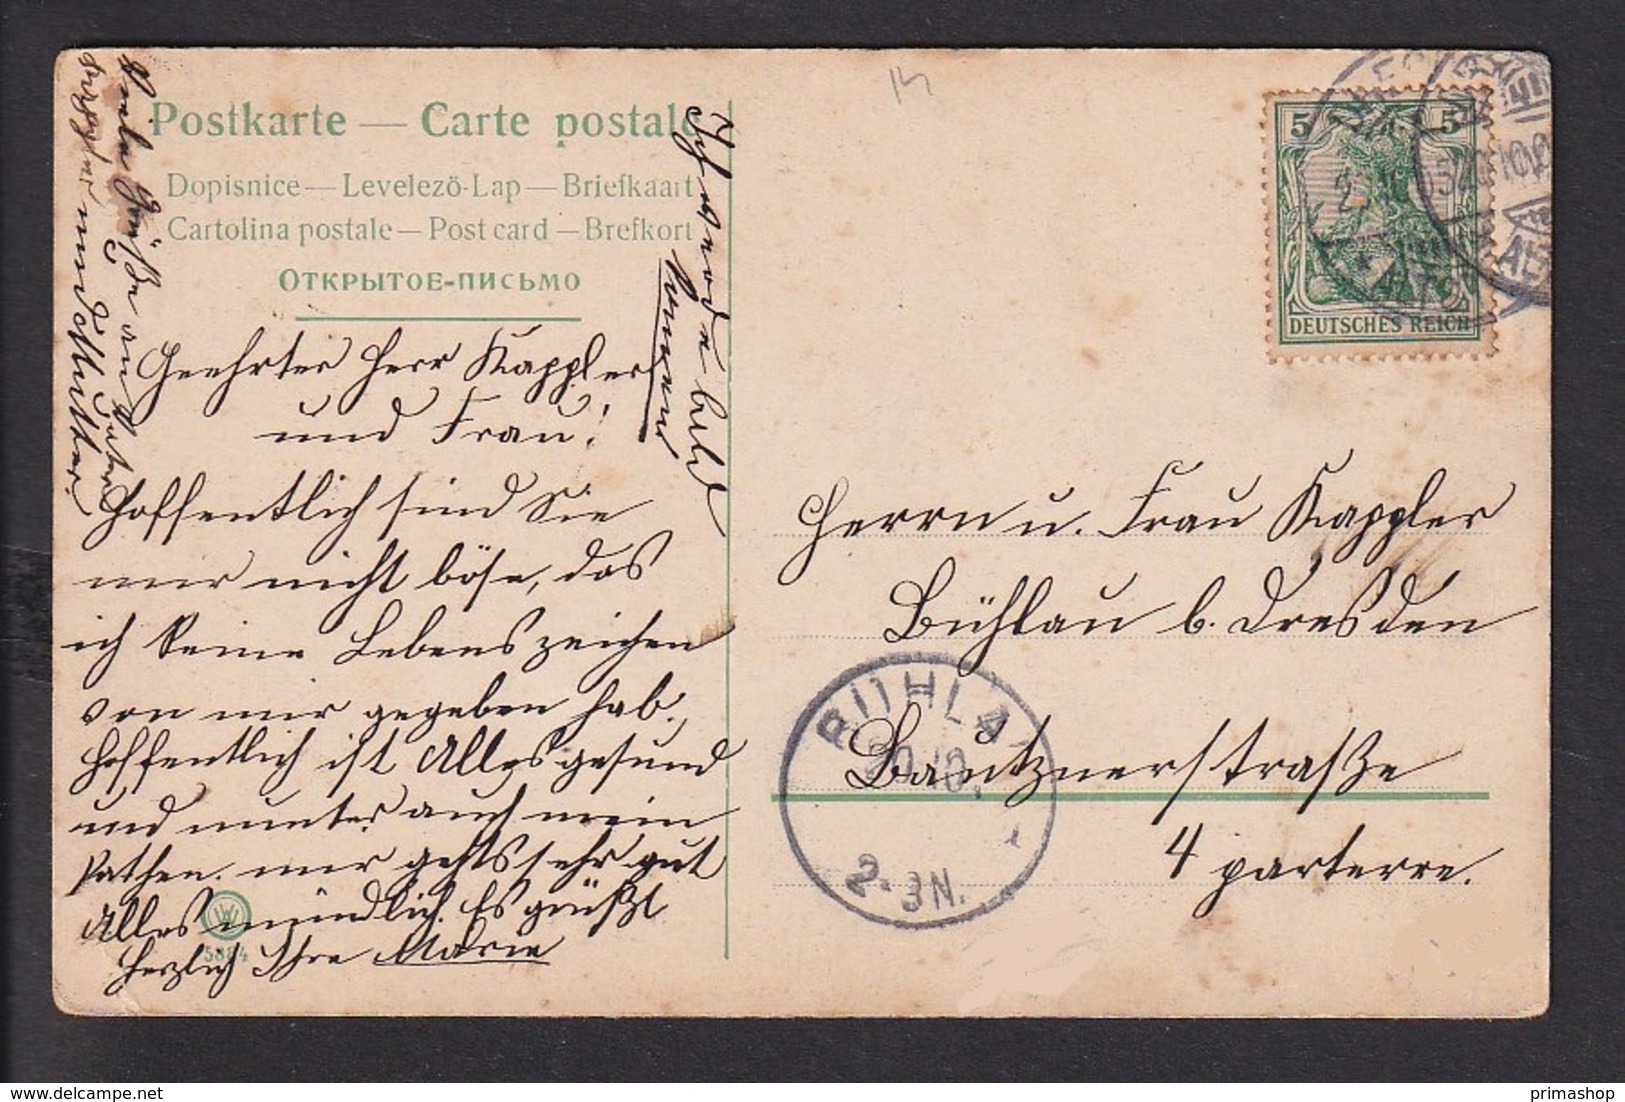 Postkarte — Carte postale
Dopisnice — Levelező-Lap — Briefkaart
Cartolina postale — Post card — Brefkort
ОТКРЫТОЕ-ПИСЬМО
Geehrter Herr Kappler
und Frau!
Hoffentlich sind Sie
mir nicht böse, das
ich keine Lebenszeichen
von mir gegeben hab.
Hoffentlich ist Alles gesund
und munter auch mein
Pathen. mir gehts sehr gut
Alles mündlich. Es grüßt
herzlich Ihre Marie
W
5884
Ich werde bald
kommen
Viele Grüße an Vater
und Mutter.
5 5
DEUTSCHES REICH
Herrn u. Frau Kappler
Bühlau b. Dresden
Bautznerstraße
4 parterre.
BÜHLAU
20.10.
2-3N.
delcampe.net
primashop